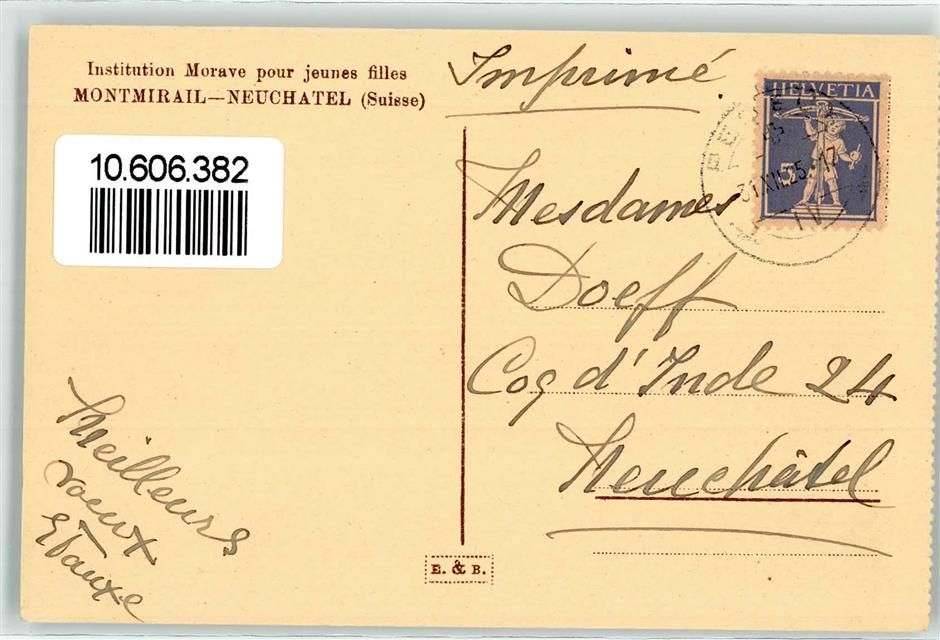 Institution Morave pour jeunes filles
MONTMIRAIL—NEUCHATEL (Suisse)
Imprimé
10.606.382
HELVETIA
5
31.XII.25.-17
Mesdames
Doeff
Coq d'Inde 24
Neuchâtel
Meilleurs
voeux
E. & B.